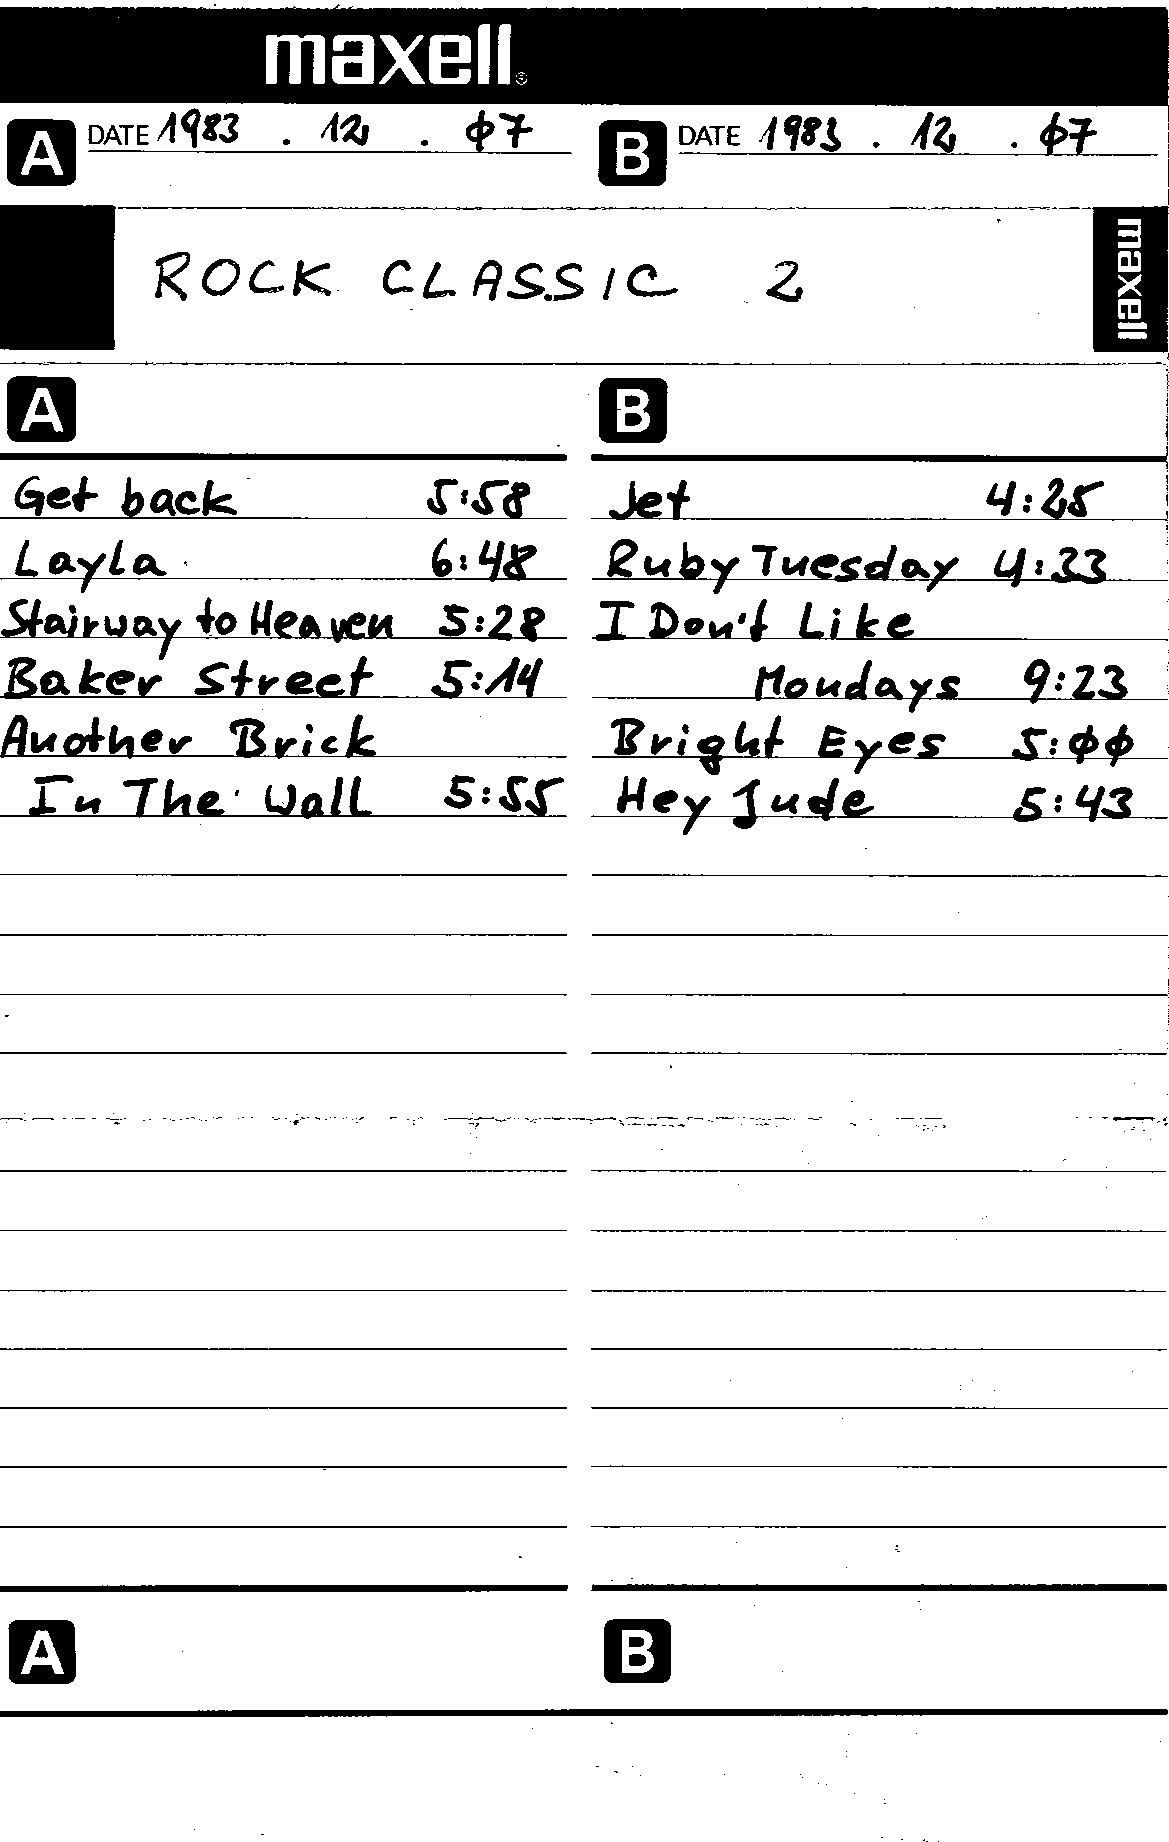 maxell®
A DATE 1983 . 12 . 07 B DATE 1983 . 12 . 07
ROCK CLASSIC 2
maxell
A
Get back 5:58
Layla 6:48
Stairway to Heaven 5:28
Baker Street 5:14
Another Brick
In The Wall 5:55
B
Jet 4:25
Ruby Tuesday 4:33
I Don't Like
Mondays 9:23
Bright Eyes 5:00
Hey Jude 5:43
A B